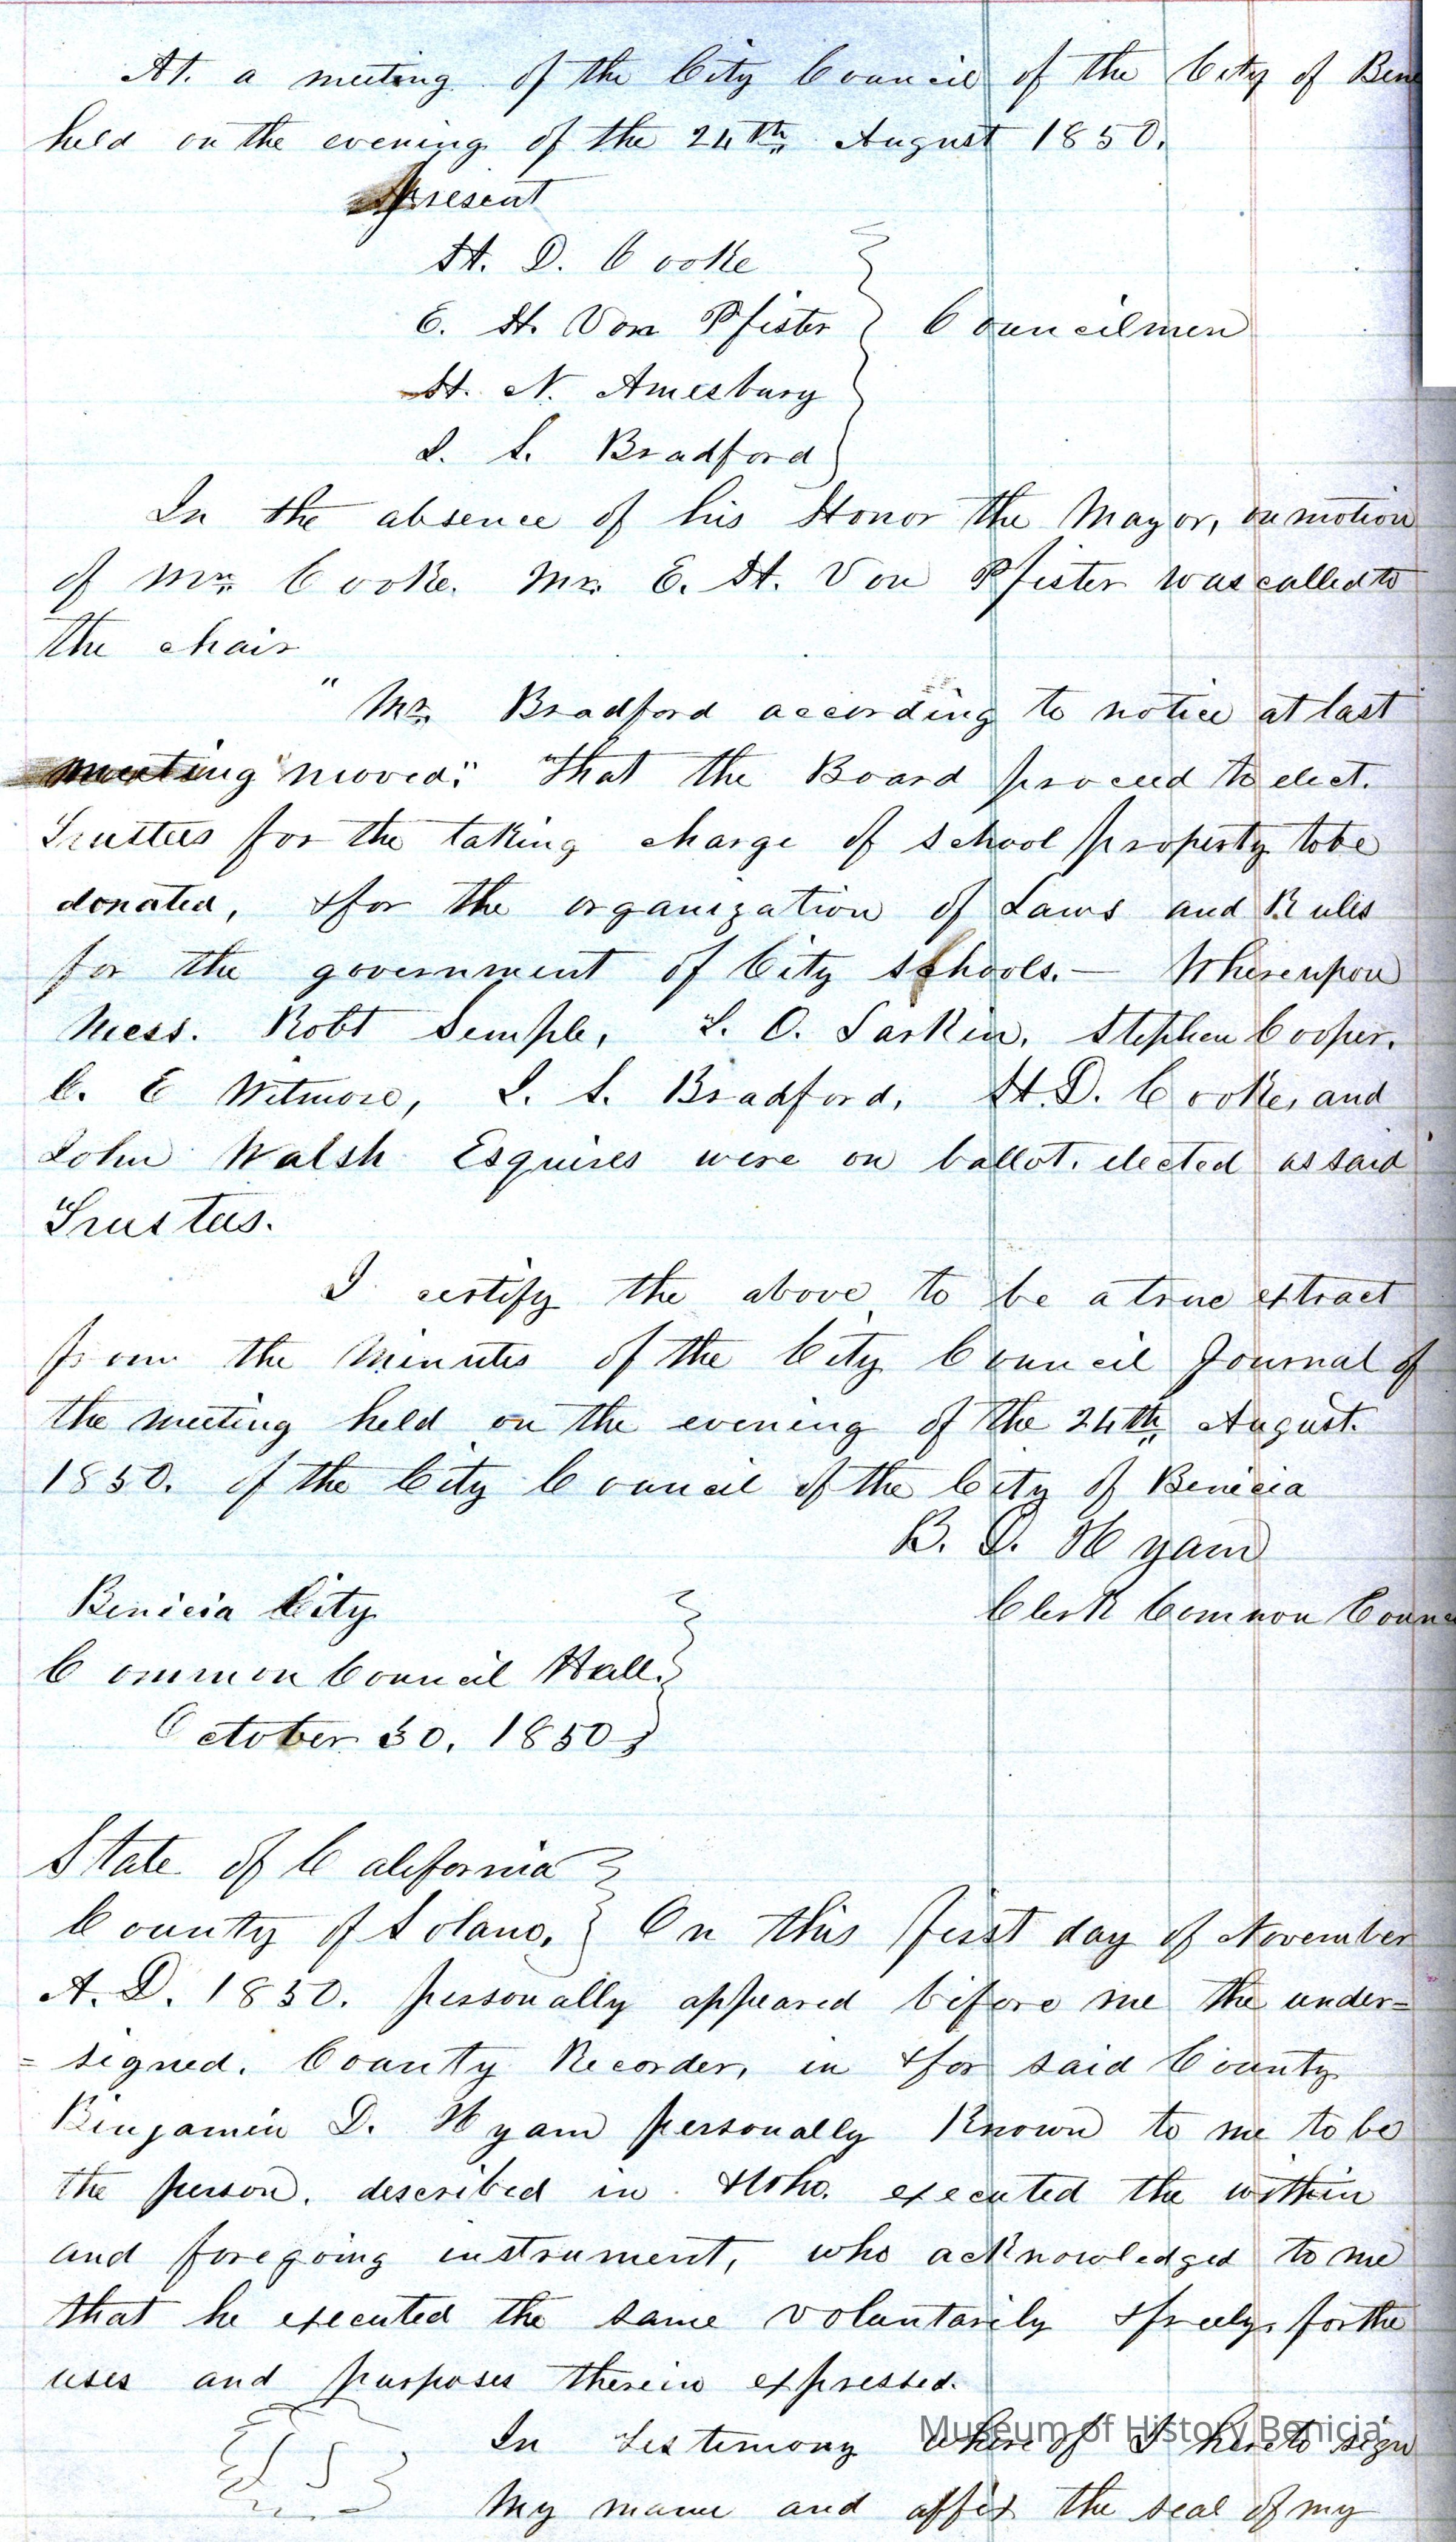 At a meeting of the City Council of the City of Bene
held on the evening of the 24th August 1850.
present
H. D. Cooke
E. H. Von Pfister } Councilmen
H. N. Amesbury
I. S. Bradford
In the absence of his Honor the Mayor, on motion
of Mr. Cooke. Mr. E. H. Von Pfister was called to
the chair
" Mr. Bradford according to notice at last
meeting moved:" "That the Board proceed to elect.
Trustees for the taking charge of school property to be
donated, & for the organization of Laws and Rules
for the government of City schools. — Whereupon
Mess. Robt Semple, T. O. Larkin, Stephen Cooper,
C. E Witmore, I. S. Bradford, H. D. Cooke, and
John Walsh Esquires were on ballot. elected as said
Trustees.
I certify the above to be a true extract
from the minutes of the City Council Journal of
the meeting held on the evening of the 24th August.
1850. of the City Council of the City of Benicia
B. D. Hyam
Clerk Common Counc
Benicia City
Common Council Hall.
October 30, 1850
State of California
County of Solano, } On this first day of November
A. D. 1850. personally appeared before me the under=
=signed. County Recorder, in & for said County
Binjamin D. Hyam personally known to me to be
the person. described in & who. executed the within
and foregoing instrument, who acknowledged to me
that he executed the same voluntarily & freely, for the
uses and purposes therein expressed.
In testimony whereof I hereto sign
my name and affix the seal of my
LS
Museum of History Benicia